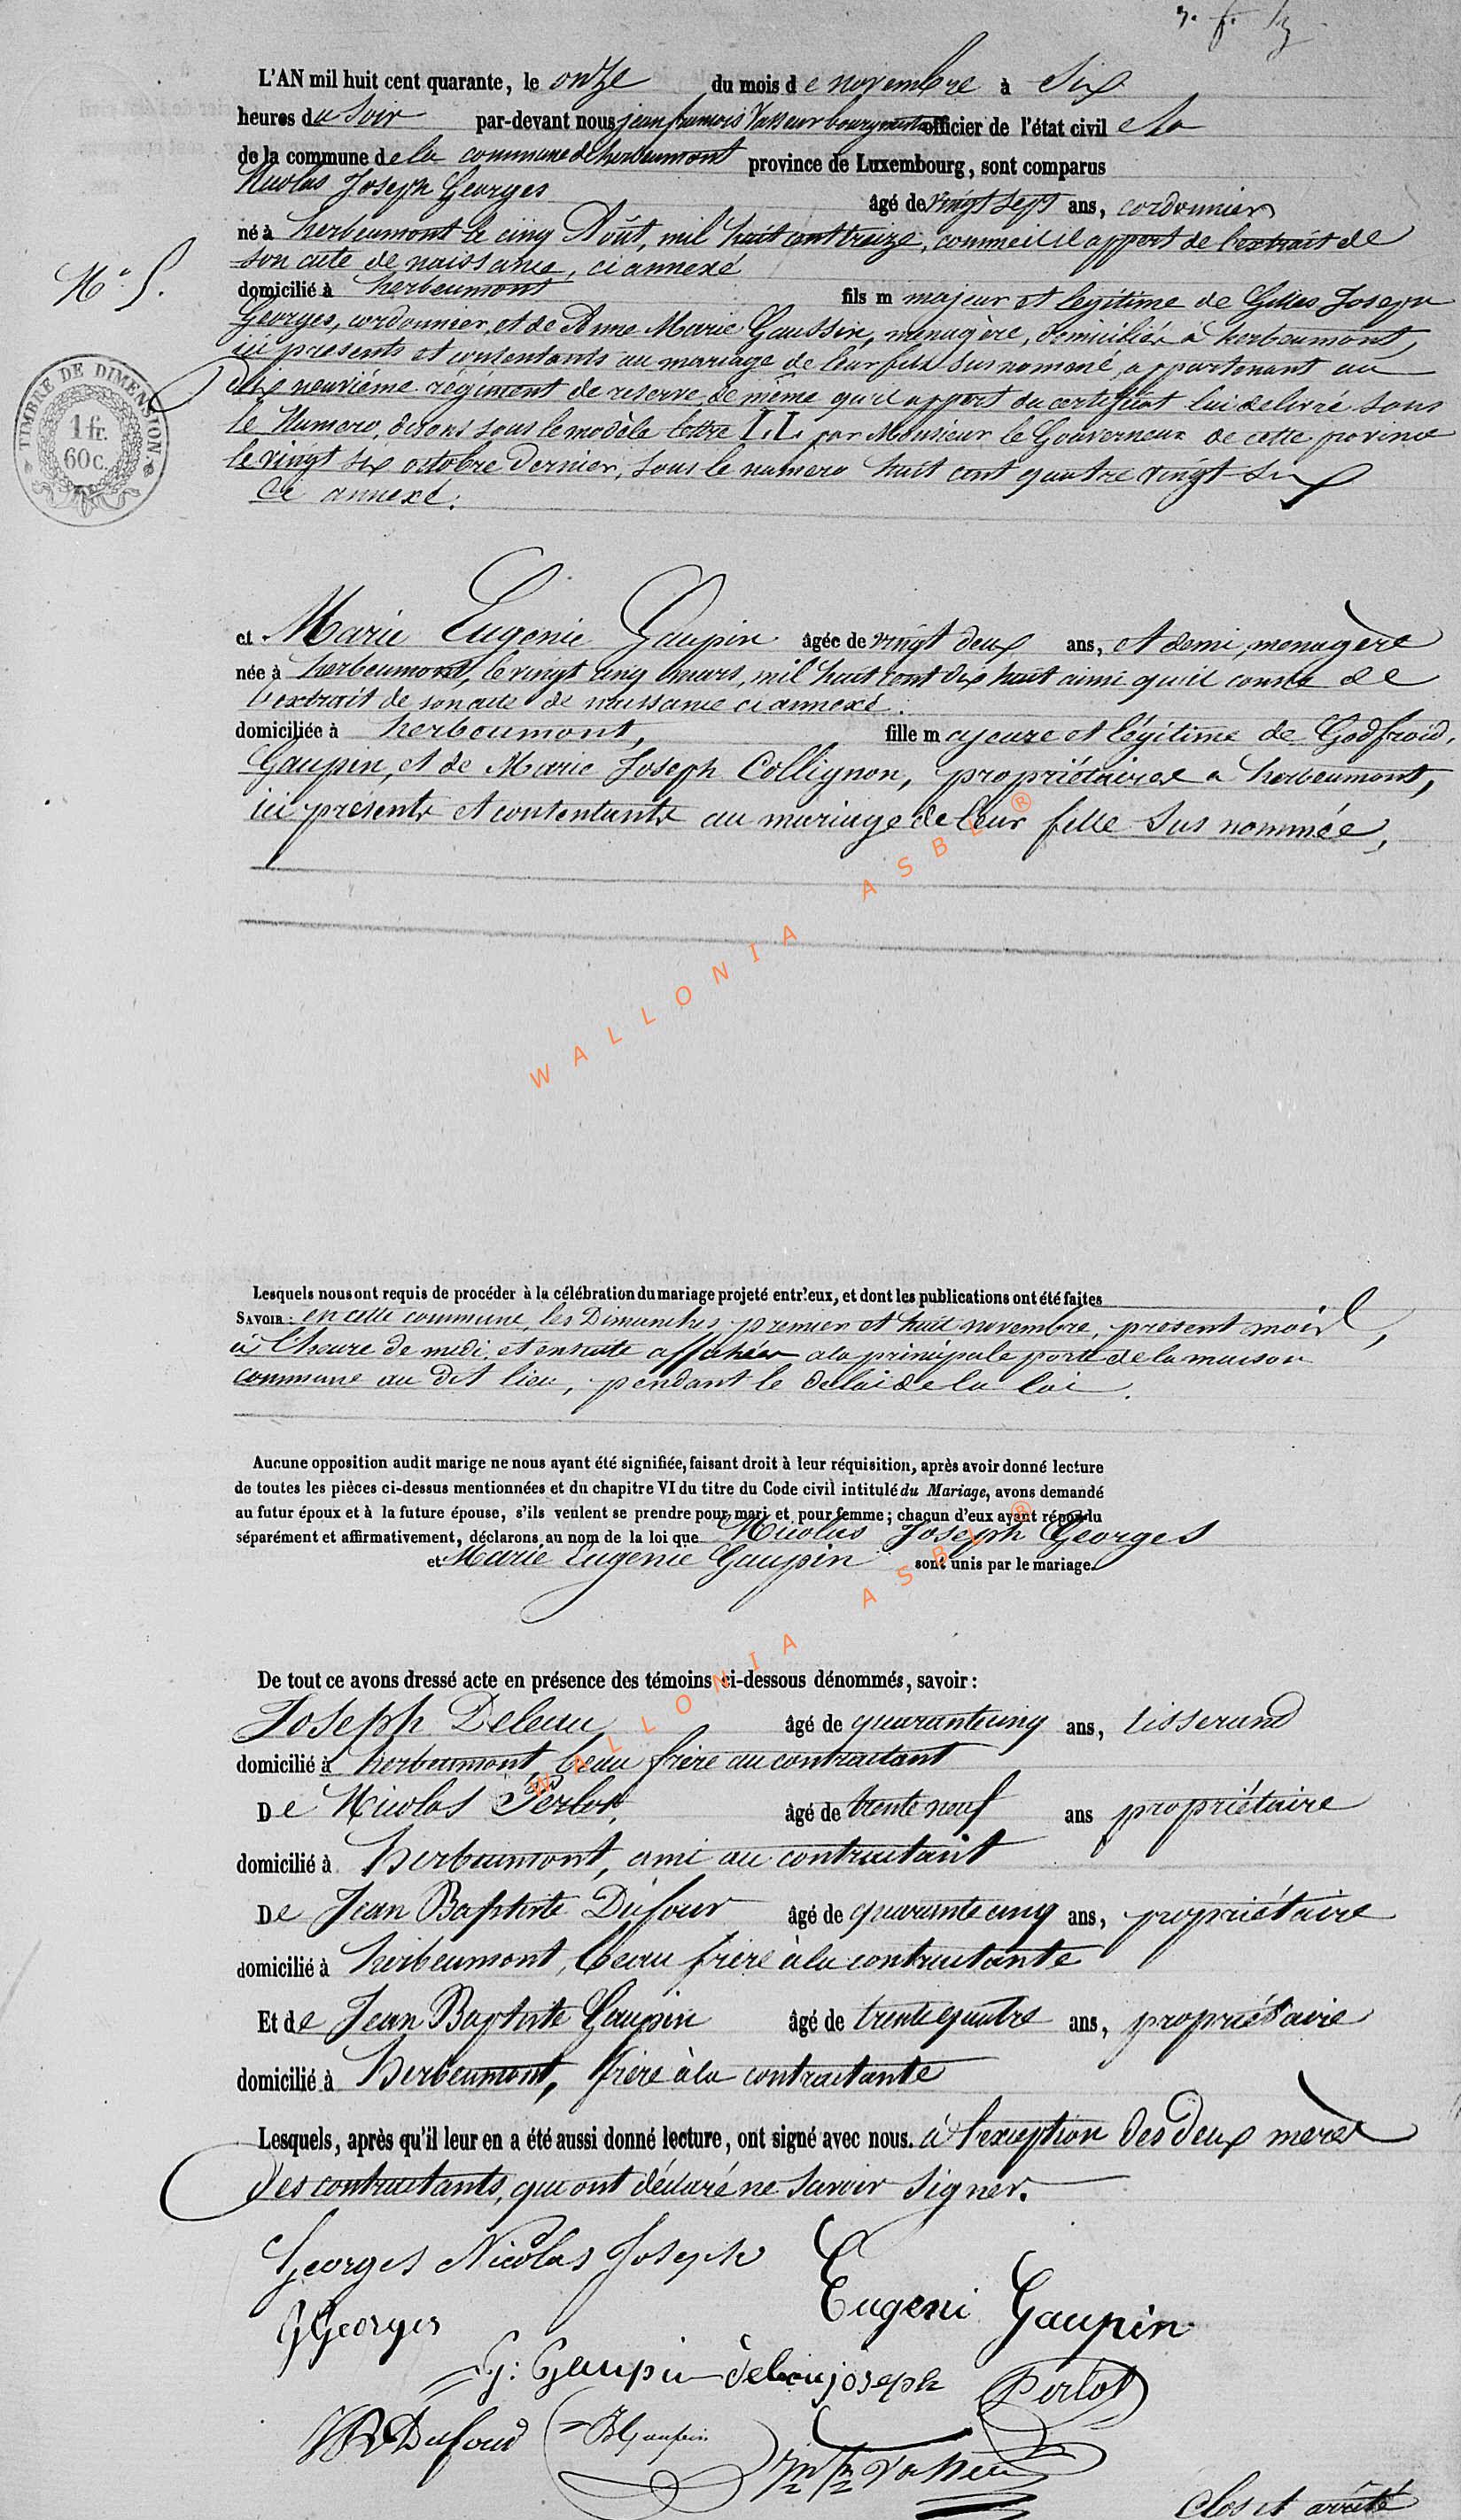 L'AN mil huit cent quarante, le onze du mois de novembre à Six
heures du Soir par-devant nous jean francois Vasseur bourgmestre officier de l'état civil de la
de la commune de la commune d'herbeumont province de Luxembourg, sont comparus
Nicolas Joseph Georges âgé de vingt sept ans, cordonnier
né à herbeumont le cinq Août, mil huit cent treize, comme il appert de l'extrait de
son acte de naissance, ci annexé
N° 5.
domicilié à herbeumont fils majeur et légitime de Gilles Joseph
Georges, cordonnier, et de Anne Marie Gaussin, menagère, domiciliés à herbeumont,
ici présents et contentants au mariage de leur fils sus nommé, appartenant au
dix neuvième régiment de reserve de même qu'il appert du certificat lui delivré sous
le Numero, disons sous le modèle lettre LL par Monsieur le Gouverneur de cette province
le vingt six octobre dernier, sous le numero huit cent quatre vingt six
ci annexé.
TIMBRE DE DIMENSION
1 fr.
60 c.
et Marie Eugenie Gaupin âgée de vingt deux ans, et demi, menagère
née à herbeumont, le vingt cinq mars, mil huit cent dix huit ainsi qu'il conste de
l'extrait de son acte de naissance ci annexé.
domiciliée à herbeumont, fille majeure et légitime de Godfroid,
Gaupin, et de Marie Joseph Collignon, propriétaires a herbeumont,
ici présents et contentants au mariage de leur fille sus nommée,
WALLONIA ASBL®
Lesquels nous ont requis de procéder à la célébration du mariage projeté entr'eux, et dont les publications ont été faites
SAVOIR : en cette commune, les Dimanches premier et huit novembre, présent mois,
à l'heure de midi, et ensuite affichées a la principale porte de la maison
commune au dit lieu, pendant le delai de la loi.
Aucune opposition audit marige ne nous ayant été signifiée, faisant droit à leur réquisition, après avoir donné lecture
de toutes les pièces ci-dessus mentionnées et du chapitre VI du titre du Code civil intitulé du Mariage, avons demandé
au futur époux et à la future épouse, s'ils veulent se prendre pour mari et pour femme ; chacun d'eux ayant répondu
séparément et affirmativement, déclarons au nom de la loi que Nicolas Joseph Georges
et Marie Eugenie Gaupin sont unis par le mariage.
WALLONIA ASBL®
De tout ce avons dressé acte en présence des témoins ci-dessous dénommés, savoir :
Joseph Deleau âgé de quarante cinq ans, tisserand
domicilié à herbeumont, beau frère au contractant
De Nicolas Perlot, âgé de trente neuf ans propriétaire
domicilié à herbeumont, ami au contractant
De Jean Baptiste Dufour âgé de quarante cinq ans, propriétaire
domicilié à herbeumont, beau frère à la contractante
Et de Jean Baptiste Gaupin âgé de trente quatre ans, propriétaire
domicilié à herbeumont, frère à la contractante
Lesquels, après qu'il leur en a été aussi donné lecture, ont signé avec nous. à l'exception des deux mères
des contractants, qui ont déclaré ne savoir signer.
Georges Nicolas Joseph
Eugeni Gaupin
G Georges
G: Gaupin deleau joseph Perlot
JB Dufour JB Gaupin
Vasseur
Clos et arrêté